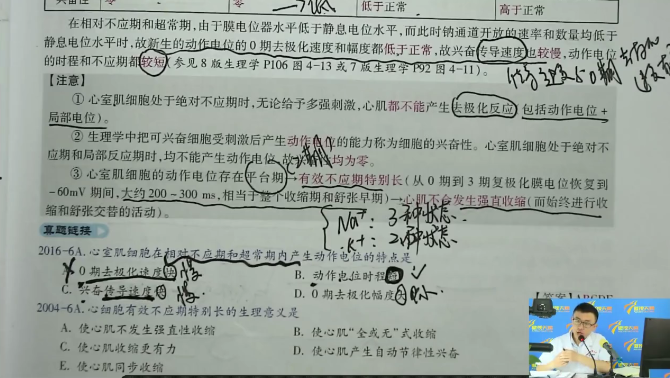 零 零 低于正常 高于正常
在相对不应期和超常期，由于膜电位器水平低于静息电位水平，而此时钠通道开放的速率和数量均低于
静息电位水平时，故新生的动作电位的0期去极化速度和幅度都低于正常，故兴奋传导速度也较慢，动作电位
的时程和不应期都较短（参见8版生理学P106图4-13或7版生理学P92图4-11）。
【注意】
①心室肌细胞处于绝对不应期时，无论给予多强刺激，心肌都不能产生去极化反应（包括动作电位+
局部电位）。
②生理学中把可兴奋细胞受刺激后产生动作电位的能力称为细胞的兴奋性。心室肌细胞处于绝对不
应期和局部反应期时，均不能产生动作电位，故 均为零。
③心室肌细胞的动作电位存在平台期→有效不应期特别长（从0期到3期复极化膜电位恢复到
-60mV期间，大约200~300ms，相当于整个收缩期和舒张早期）→心肌不会发生强直收缩（而始终进行收
缩和舒张交替的活动）。
Na⁺：3种状态.
K⁺：2种状态.
真题链接
2016-6A.心室肌细胞在相对不应期和超常期内产生动作电位的特点是
A. 0期去极化速度快 慢
B. 动作电位时程短 ✓
C. 兴奋传导速度快 慢.
D. 0期去极化幅度大 小.
2004-6A.心细胞有效不应期特别长的生理意义是
A. 使心肌不发生强直性收缩
B. 使心肌“全或无”式收缩
C. 使心肌收缩更有力
D. 使心肌产生自动节律性兴奋
E. 使心肌同步收缩